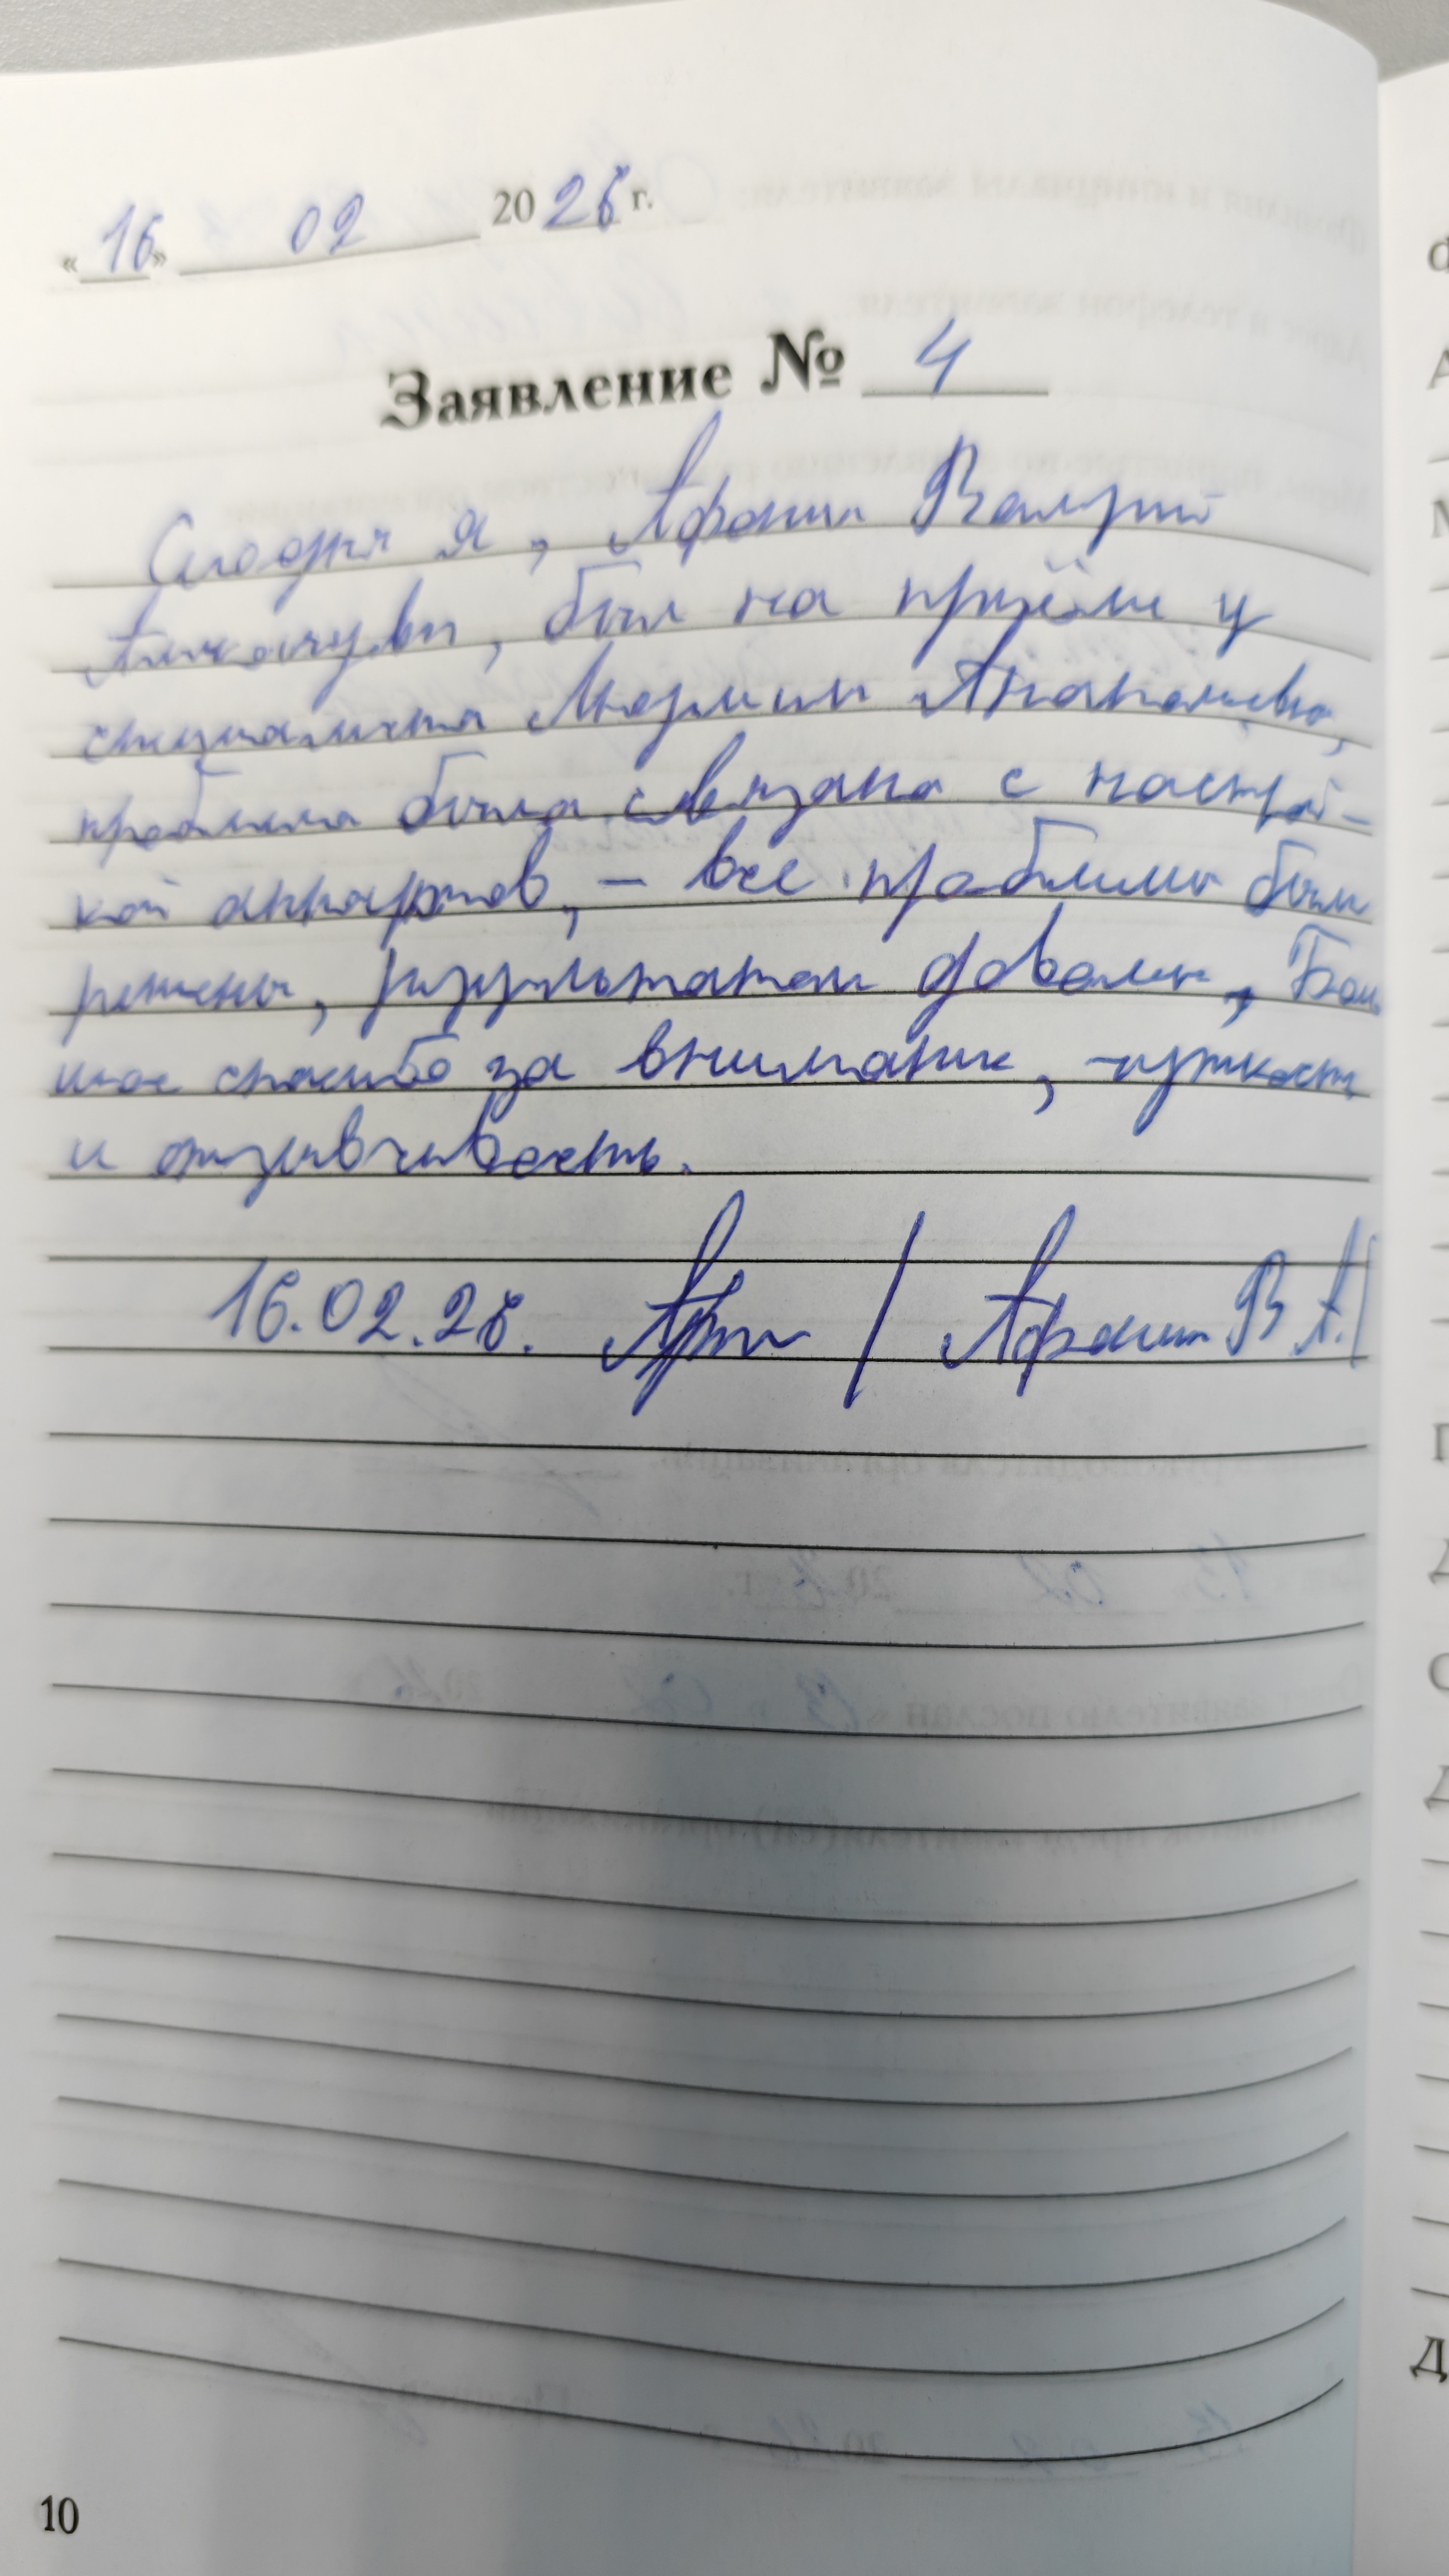 «16» 02 2026 г.
Заявление № 4
Сегодня я, Афонин Валерий
был на приёме у
специалиста Анатольевны,
проблема была связана с настрой-
кой аппаратов, – все проблемы были
решены, результатом доволен, Боль
шое спасибо за внимание, чуткость
и отзывчивость.
16.02.26. / Афонин В.А./
10